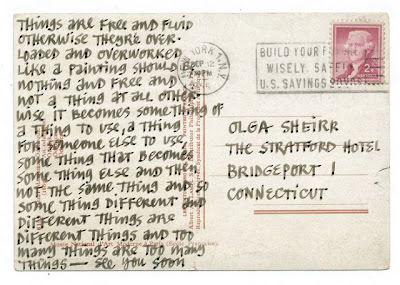 THINGS ARE FREE AND FLUID
OTHERWISE THEY'RE OVER-
LOADED AND OVERWORKED
LIKE A PAINTING SHOULD BE
NOTHING AND FREE AND
NOT A THING AT ALL OTHER-
WISE IT BECOMES SOMETHING OF
A THING TO USE, A THING
FOR SOMEONE ELSE TO USE,
SOME THING THAT BECOMES
SOME THING ELSE AND THEN
NOT THE SAME THING AND SO
SOME THING DIFFERENT AND
DIFFERENT THINGS ARE
DIFFERENT THINGS AND TOO
MANY THINGS ARE TOO MANY
THINGS — SEE YOU SOON
YORK, N.Y.
SEP 12
PM
BUILD YOUR
WISELY
U.S. SAVINGS
2¢
OLGA SHEIRR
THE STRATFORD HOTEL
BRIDGEPORT 1
CONNECTICUT